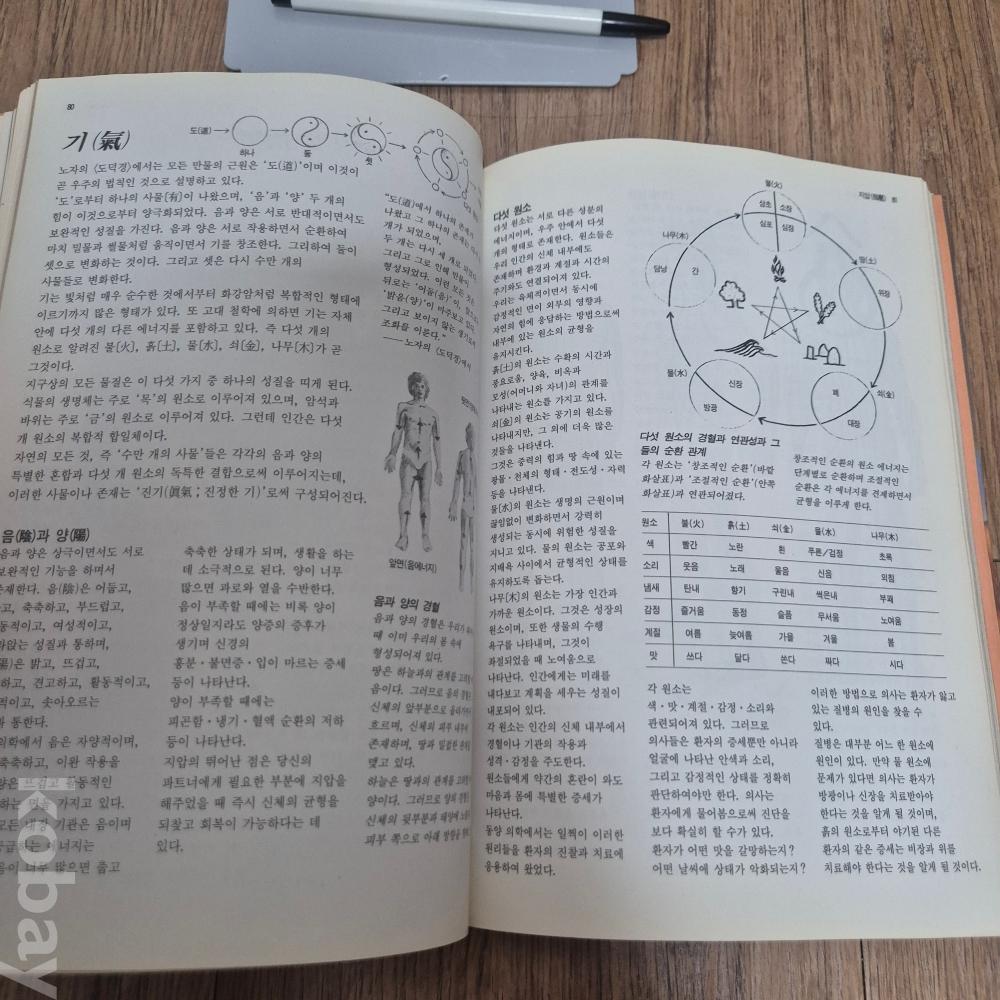 80
기(氣)
도(道)
하나
둘
셋
노자의 〈도덕경〉에서는 모든 만물의 근원은 ‘도(道)’이며 이것이
곧 우주의 법칙인 것으로 설명하고 있다.
‘도’로부터 하나의 사물[有]이 나왔으며, ‘음’과 ‘양’ 두 개의
힘이 이것으로부터 양극화되었다. 음과 양은 서로 반대적이면서도
보완적인 성질을 가진다. 음과 양은 서로 작용하면서 순환하여
마치 밀물과 썰물처럼 움직이면서 기를 창조한다. 그리하여 둘이
셋으로 변화하는 것이다. 그리고 셋은 다시 수만 개의
사물들로 변화한다.
기는 빛처럼 매우 순수한 것에서부터 화강암처럼 복합적인 형태에
이르기까지 많은 형태가 있다. 또 고대 철학에 의하면 기는 자체
안에 다섯 개의 다른 에너지를 포함하고 있다. 즉 다섯 개의
원소로 알려진 불[火], 흙[土], 물[水], 쇠[金], 나무[木]가 곧
그것이다.
지구상의 모든 물질은 이 다섯 가지 중 하나의 성질을 띠게 된다.
식물의 생명체는 주로 ‘목’의 원소로 이루어져 있으며, 암석과
바위는 주로 ‘금’의 원소로 이루어져 있다. 그런데 인간은 다섯
개 원소의 복합적 합일체이다.
자연의 모든 것, 즉 ‘수만 개의 사물’들은 각각의 음과 양의
특별한 혼합과 다섯 개 원소의 독특한 결합으로써 이루어지는데,
이러한 사물이나 존재는 ‘진기(眞氣 ; 진정한 기)’로써 구성되어진다.
“도(道)에서 하나의 존재가
나왔고 그 하나의 존재는
개가 되었으며,
두 개는 다시 세 개로
그리고 그로 인해 만물이
형성되었다. 이런 모든 것은
뒤로는 ‘어둠(음)’이,
‘밝음(양)’이 마주보고
그리고 보이지 않는
조화를 이룬다.”
—— 노자의 〈도덕경〉에서
앞면(음에너지)
음(陰)과 양(陽)
음과 양은 상극이면서도 서로
보완적인 기능을 하며서
존재한다. 음(陰)은 어둡고,
고, 축축하고, 부드럽고,
동적이고, 여성적이고,
라앉는 성질과 통하며,
陽)은 밝고, 뜨겁고,
하고, 견고하고, 활동적이고,
적이고, 솟아오르는
과 통한다.
의학에서 음은 자양적이며,
축축하고, 이완 작용을
양은 뜨겁고 활동적인
하는 가지고 있다.
모든 내장 기관은 음이며
공급하는 에너지는
음이 너무 많으면 춥고
축축한 상태가 되며, 생활을 하는
데 소극적으로 된다. 양이 너무
많으면 과로와 열을 수반한다.
음이 부족할 때에는 비록 양이
정상일지라도 양증의 증후가
생기며 신경의
흥분·불면증·입이 마르는 증세
등이 나타난다.
양이 부족할 때에는
피곤함·냉기·혈액 순환의 저하
등이 나타난다.
지압의 뛰어난 점은 당신의
파트너에게 필요한 부분에 지압을
해주었을 때 즉시 신체의 균형을
되찾고 회복이 가능하다는 데
있다.
음과 양의 경혈
음과 양의 경혈은 우리가
때 이미 우리의 몸 속에
형성되어져 있다.
땅은 하늘과의 관계를
음이다. 그러므로 음의 경혈은
신체의 앞부분으로 올라가
흐르며, 신체의 피부 내부에
존재하며, 땅과 밀접한
맺고 있다.
하늘은 땅과의 관계를
양이다. 그러므로 양의
신체의 뒷부분과 태양에
피부 쪽으로 아래 방향을
다섯 원소
다섯 원소는 서로 다른 성분의
에너지이며, 우주 안에서 다섯
개의 형태로 존재한다. 원소들은
우리 인간의 신체 내부에도
존재하며 환경과 계절과 시간의
주기와도 연결되어져 있다.
우리는 육체적이면서 동시에
감정적인 면이 외부의 영향과
자연의 힘에 응답하는 방법으로써
내부에 있는 원소의 균형을
유지시킨다.
흙[土]의 원소는 수확의 시간과
풍요로움, 양육, 비옥과
모성(어머니와 자녀)의 관계를
나타내는 원소를 가지고 있다.
쇠[金]의 원소는 공기의 원소를
나타내지만, 그 외에 더욱 많은
것들을 나타낸다.
그것은 중력의 힘과 땅 속에 있는
광물·천체의 형태·전도성·자력
등을 나타낸다.
물[水]의 원소는 생명의 근원이며
끊임없이 변화하면서 강력히
생성되는 동시에 위험한 성질을
지니고 있다. 물의 원소는 공포와
지배욕 사이에서 균형적인 상태를
유지하도록 돕는다.
나무[木]의 원소는 가장 인간과
가까운 원소이다. 그것은 성장의
원소이며, 또한 생물의 수행
욕구를 나타내며, 그것이
좌절되었을 때 노여움으로
나타난다. 인간에게는 미래를
내다보고 계획을 세우는 성질이
내포되어 있다.
각 원소는 인간의 신체 내부에서
경혈이나 기관의 작용과
성격·감정을 주도한다.
원소들에게 약간의 혼란이 와도
마음과 몸에 특별한 증세가
나타난다.
동양 의학에서는 일찍이 이러한
원리들을 환자의 진찰과 치료에
응용하여 왔었다.
불(火)
삼초
소장
심포
심장
나무(木)
담낭
간
흙(土)
위장
물(水)
신장
방광
쇠(金)
폐
대장
다섯 원소의 경혈과 연관성과 그
들의 순환 관계
각 원소는 ‘창조적인 순환’(바깥
화살표)과 ‘조절적인 순환’(안쪽
화살표)과 연관되어졌다.
창조적인 순환의 원소 에너지는
단계별로 순환하며 조절적인
순환은 각 에너지를 견제하면서
균형을 이루게 한다.
원소 불(火) 흙(土) 쇠(金) 물(水) 나무(木)
색 빨간 노란 흰 푸른/검정 초록
소리 웃음 노래 울음 신음 외침
냄새 탄내 향기 구린내 썩은내 부패
감정 즐거움 동정 슬픔 무서움 노여움
계절 여름 늦여름 가을 겨울 봄
맛 쓰다 달다 쏜다 짜다 시다
각 원소는
색·맛·계절·감정·소리와
관련되어져 있다. 그러므로
의사들은 환자의 증세뿐만 아니라
얼굴에 나타난 안색과 소리,
그리고 감정적인 상태를 정확히
판단하여야만 한다. 의사는
환자에게 물어봄으로써 진단을
보다 확실히 할 수가 있다.
환자가 어떤 맛을 갈망하는지?
어떤 날씨에 상태가 악화되는지?
이러한 방법으로 의사는 환자가 앓고
있는 질병의 원인을 찾을 수
있다.
질병은 대부분 어느 한 원소에
원인이 있다. 만약 물 원소에
문제가 있다면 의사는 환자가
방광이나 신장을 치료받아야
한다는 것을 알게 될 것이며,
흙의 원소로부터 야기된 다른
환자의 같은 증세는 비장과 위를
치료해야 한다는 것을 알게 될 것이다.
kobay